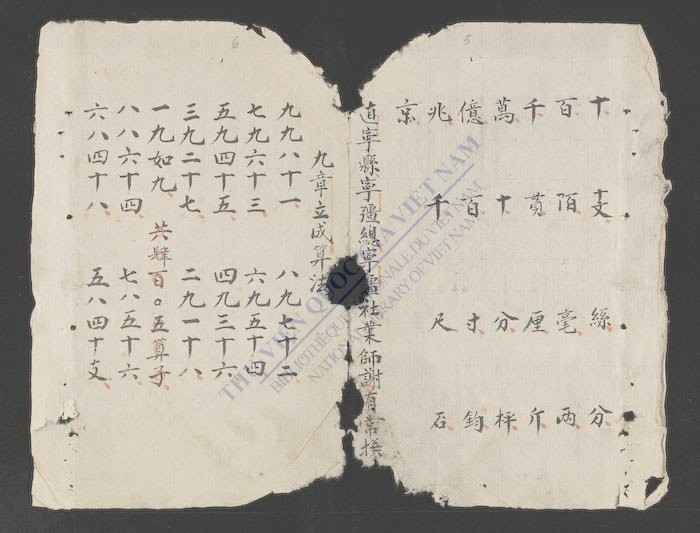 十 文 絲 分
百 陌 毫 兩
千 貫 厘 斤
萬 十 分 秤
億 百 寸 鈞
兆 千 尺 石
京
直寧縣寧疆總寧疆社業師謝有常撰
九章立成算法
九九八十一 八九七十二
七九六十三 六九五十四
五九四十五 四九三十六
三九二十七 二九一十八
一九如九 共肆百〇五算子
八八六十四 七八五十六
六八四十八 五八四十文
5
6
THƯ VIỆN QUỐC GIA VIỆT NAM
BIBLIOTHÈQUE NATIONALE DU VIETNAM
NATIONAL LIBRARY OF VIETNAM